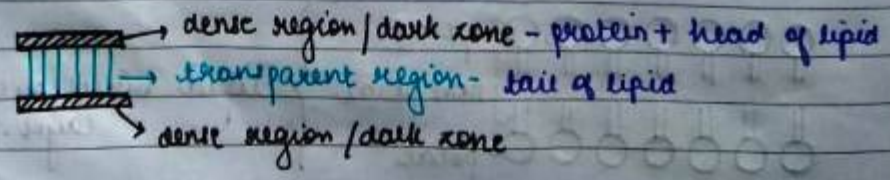 dense region/dark zone - protein + head of lipid
transparent region - tail of lipid
dense region/dark zone